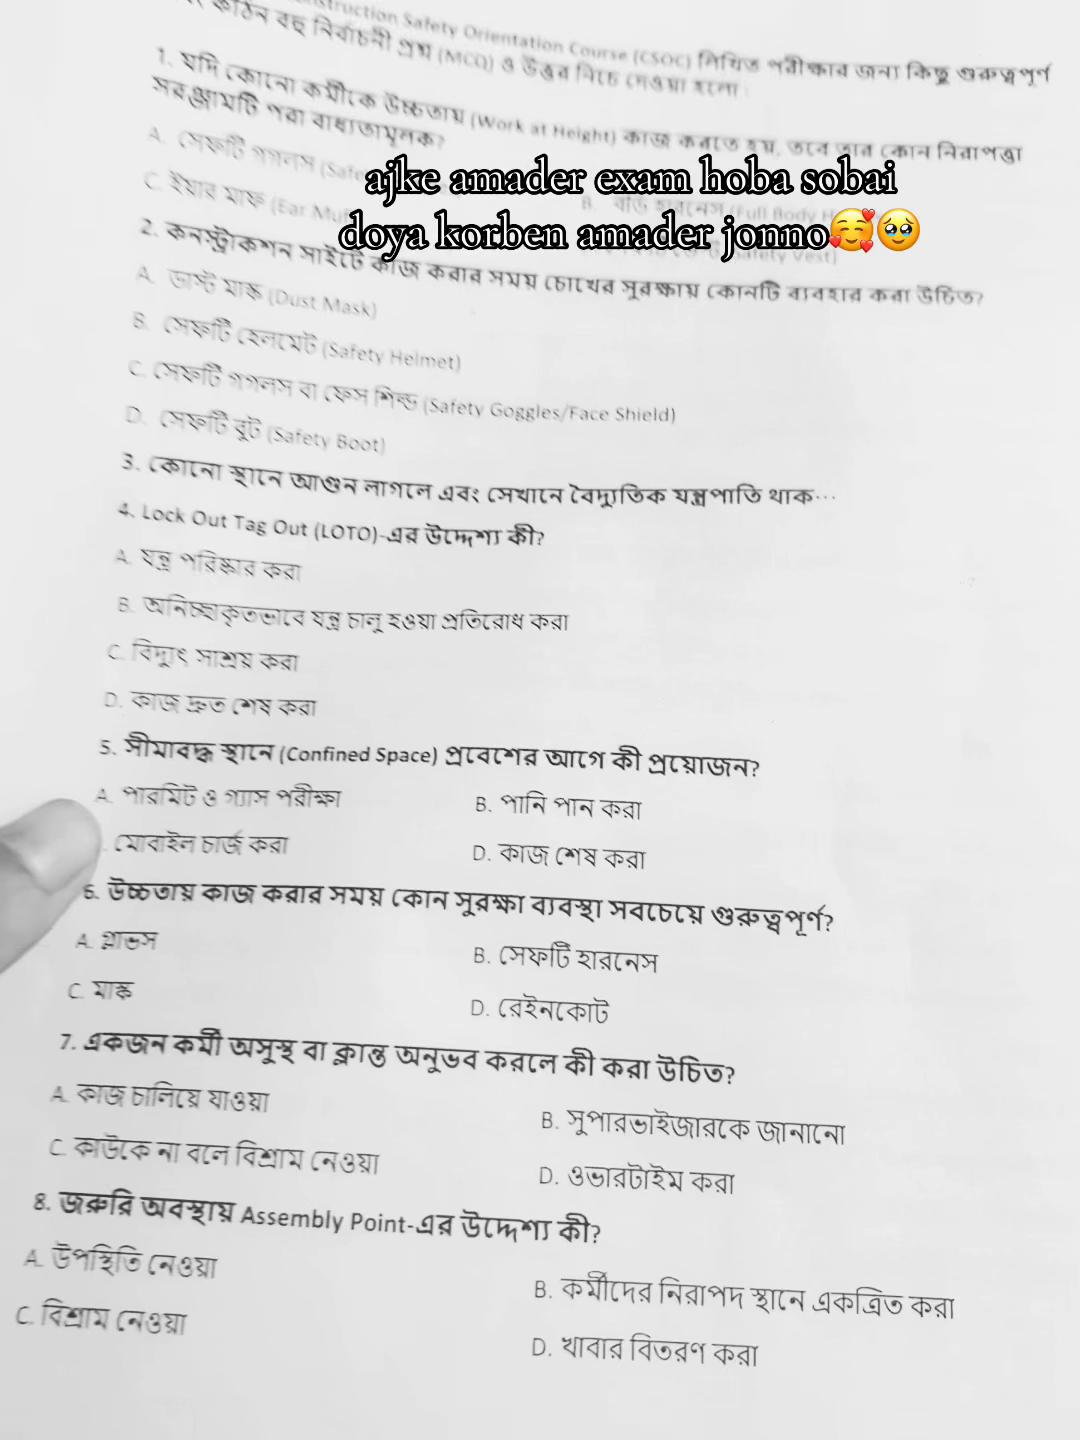 Construction Safety Orientation Course (CSOC) লিখিত পরীক্ষার জন্য কিছু গুরুত্বপূর্ণ
কঠিন বহু নির্বাচনী প্রশ্ন (MCQ) ও উত্তর নিচে দেওয়া হলো
1. যদি কোনো কর্মীকে উচ্চতায় (Work at Height) কাজ করতে হয়, তবে তার কোন নিরাপত্তা
সরঞ্জামটি পরা বাধ্যতামূলক?
A. সেফটি গগলস (Safe
B. বডি হারনেস (Full Body H
ajke amader exam hoba sobai
doya korben amader jonno🥰🥹
C. ইয়ার মাফ (Ear Muf
(Safety Vest)
2. কনস্ট্রাকশন সাইটে কাজ করার সময় চোখের সুরক্ষায় কোনটি ব্যবহার করা উচিত?
A. ডাস্ট মাস্ক (Dust Mask)
B. সেফটি হেলমেট (Safety Helmet)
C. সেফটি গগলস বা ফেস শিল্ড (Safety Goggles/Face Shield)
D. সেফটি বুট (Safety Boot)
3. কোনো স্থানে আগুন লাগলে এবং সেখানে বৈদ্যুতিক যন্ত্রপাতি থাক...
4. Lock Out Tag Out (LOTO)-এর উদ্দেশ্য কী?
A. যন্ত্র পরিষ্কার করা
B. অনিচ্ছাকৃতভাবে যন্ত্র চালু হওয়া প্রতিরোধ করা
C. বিদ্যুৎ সাশ্রয় করা
D. কাজ দ্রুত শেষ করা
5. সীমাবদ্ধ স্থানে (Confined Space) প্রবেশের আগে কী প্রয়োজন?
A. পারমিট ও গ্যাস পরীক্ষা
B. পানি পান করা
. মোবাইল চার্জ করা
D. কাজ শেষ করা
6. উচ্চতায় কাজ করার সময় কোন সুরক্ষা ব্যবস্থা সবচেয়ে গুরুত্বপূর্ণ?
A. গ্লাভস
B. সেফটি হারনেস
C. মাস্ক
D. রেইনকোট
7. একজন কর্মী অসুস্থ বা ক্লান্ত অনুভব করলে কী করা উচিত?
A. কাজ চালিয়ে যাওয়া
B. সুপারভাইজারকে জানানো
C. কাউকে না বলে বিশ্রাম নেওয়া
D. ওভারটাইম করা
8. জরুরি অবস্থায় Assembly Point-এর উদ্দেশ্য কী?
A. উপস্থিতি নেওয়া
B. কর্মীদের নিরাপদ স্থানে একত্রিত করা
C. বিশ্রাম নেওয়া
D. খাবার বিতরণ করা